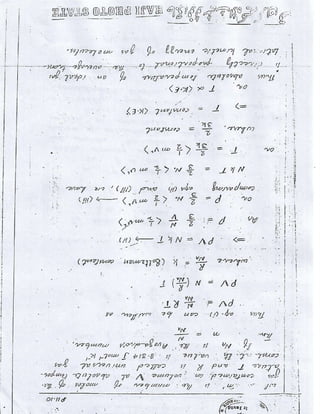 P11-10
let 'n' is the number of moles of the
gas contained in volume V at absolute temper-
ature T and R is called universal gas
constant. Its value is 8.314 J mol⁻¹ K⁻¹
If N_A is the Avogadro's number.
Then n = N/N_A
Thus eq (i) can be written as
PV = N/N_A RT
PV = N (R/N_A) T
where R/N_A = k (Boltzman constant)
⇒ PV = NkT → (ii)
As P = 2/3 N/V <1/2 mv²>
or PV = 2/3 N <1/2 mv²> → (iii)
comparing eq (ii) and (iii), we have
NkT = 2/3 N <1/2 mv²>
or T = 2/3k <1/2 mv²>
where, 2/3k = constant
⇒ T = constant <K.E>
or T ∝ <K.E>
Thus absolute temperature of an ideal gas
is directly proportional to the average trans-
lational kinetic energy of gas molecules.
HAJI PHOTO STATE